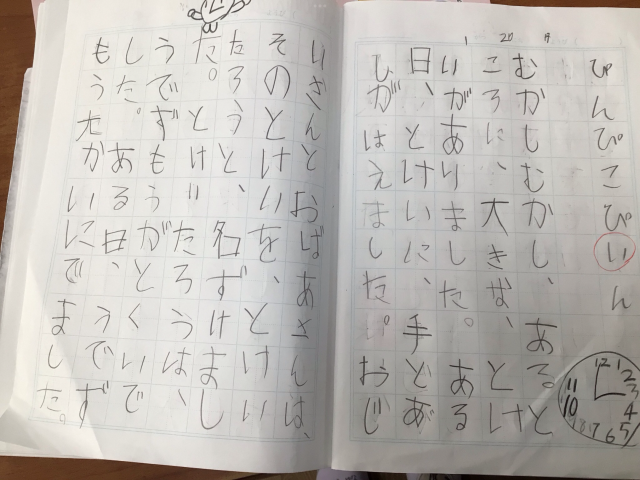 1 20 9
ぴんぴこぴいん
むかしむかし、ある。と
ころに、大きな、とけ
いがありました。ある
日、とけいに、手とあ
しがはえました。おじ
12
1
2
3
4
5
6
7
8
10
11
いさんとおばあさんは、
そのとけいを、とけい
たろうと、名ずけまし
た。とけいたろうは、
うでずもうがとくいで、
した。ある日、うでず
もう大かいにでました。